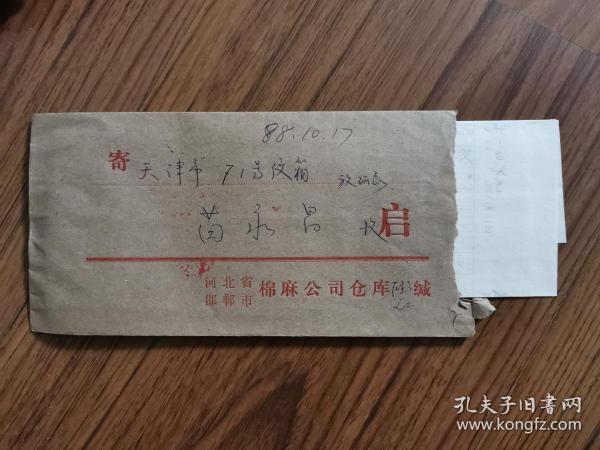 88.10.17
寄 天津市 71号信箱
苗永昌 收 启
河北省邯郸市 棉麻公司仓库 缄
孔夫子旧书网
www.kongfz.com